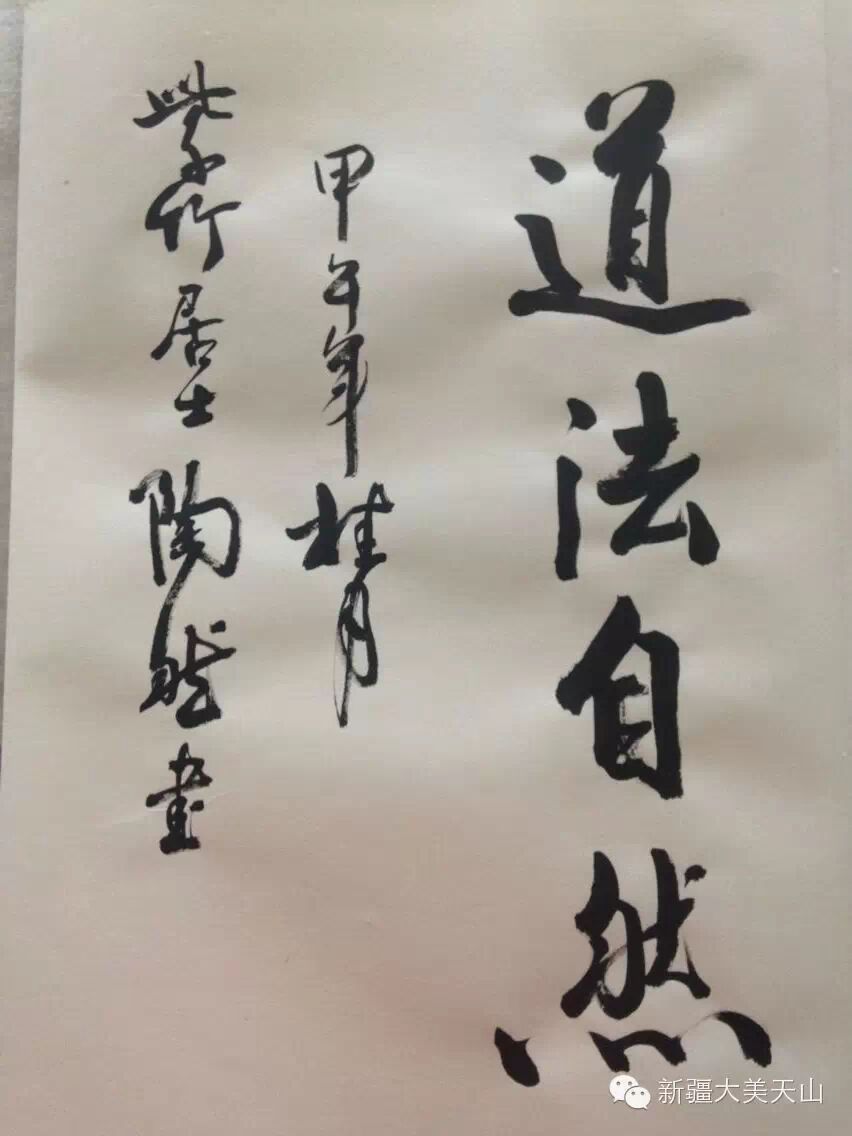 道法自然
甲午年桂月
紫竹居士陶然書
新疆大美天山